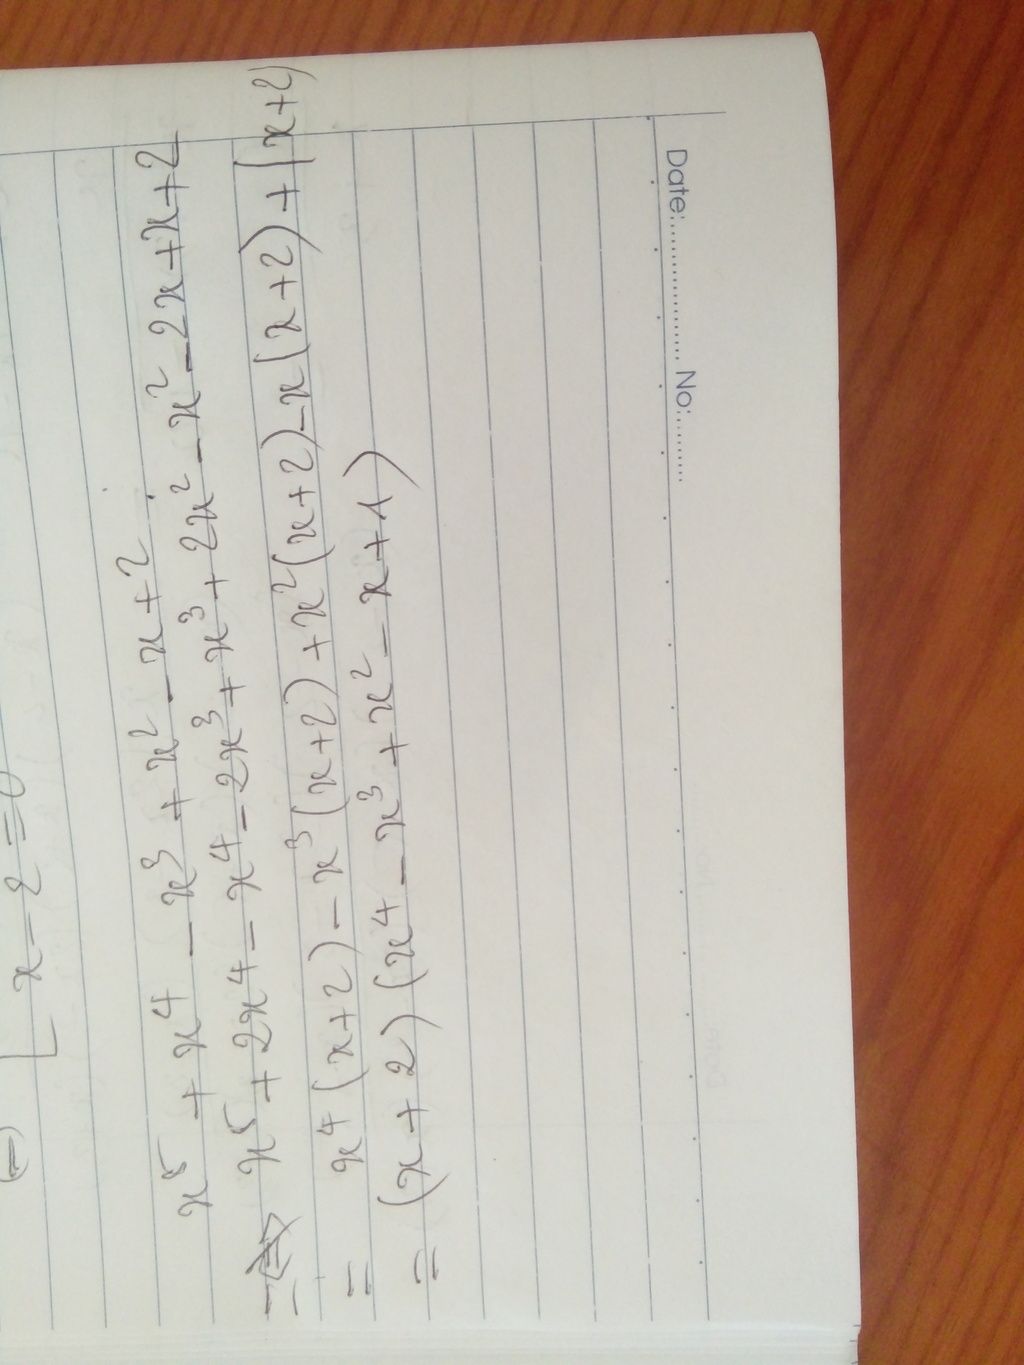 Date: ........................ No: ..........
[ x - 2 = 0
x⁵ + x⁴ - x³ + x² - x + 2
= x⁵ + 2x⁴ - x⁴ - 2x³ + x³ + 2x² - x² - 2x + x + 2
= x⁴(x+2) - x³(x+2) + x²(x+2) - x(x+2) + (x+2)
= (x+2)(x⁴ - x³ + x² - x + 1)